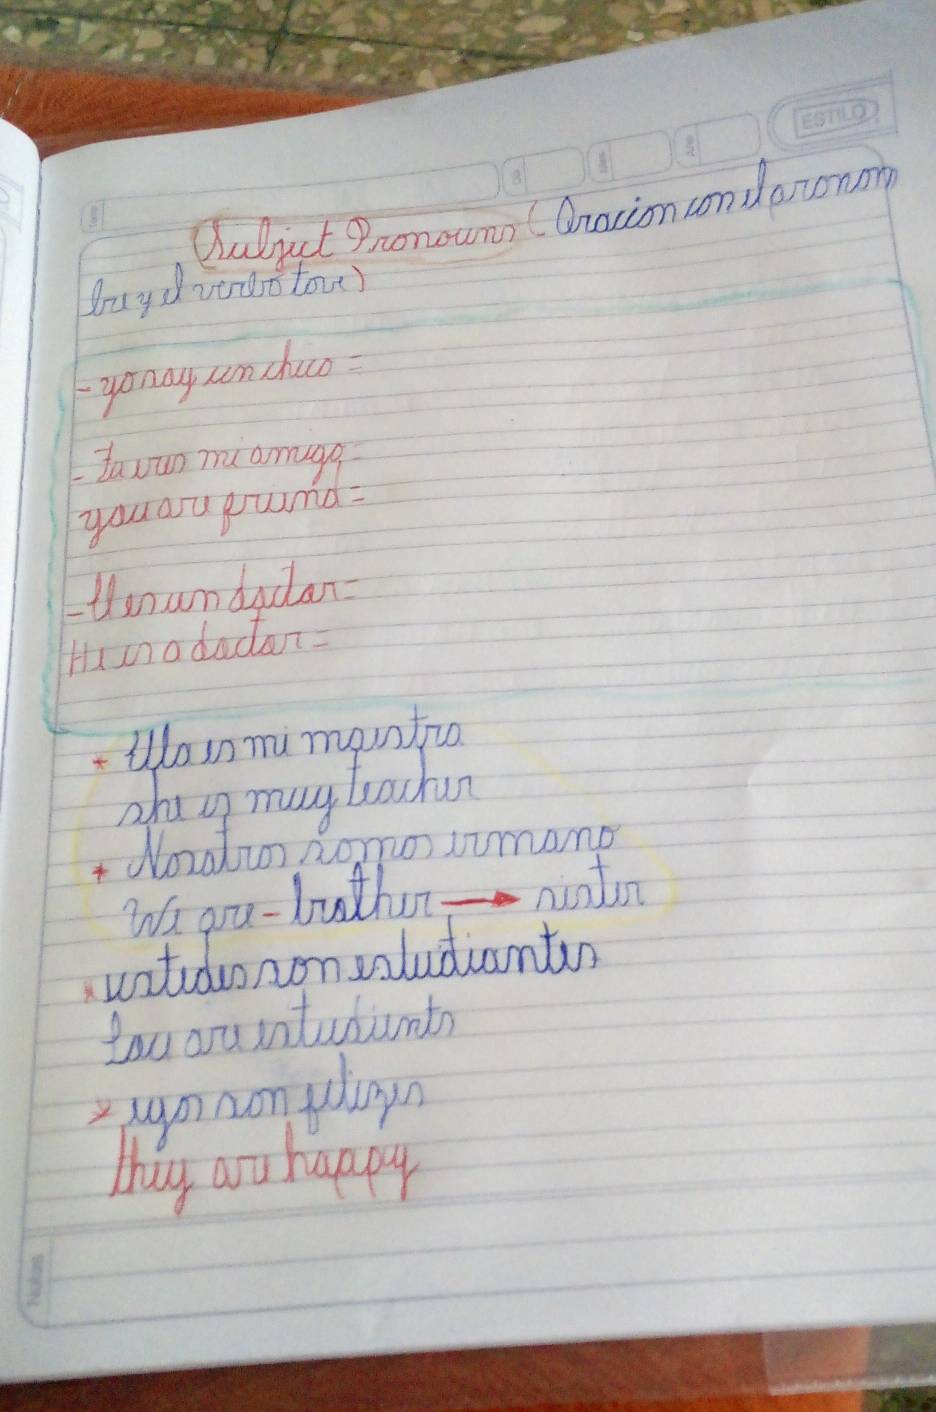 ESTILO
Subject Pronouns (Oracion con el pronom
bre y el verbo tove)
- yo soy un chico =
- Tu eres mi amigo =
you are friend =
- El es un doctor =
He is a doctor =
* Ella es mi maestra
she is muy teacher
* Nosotros somos ermano
We are - brother → sister
* ustedes son estudiantes
You are estudients
* eyos son felizes
they are happy
Notas